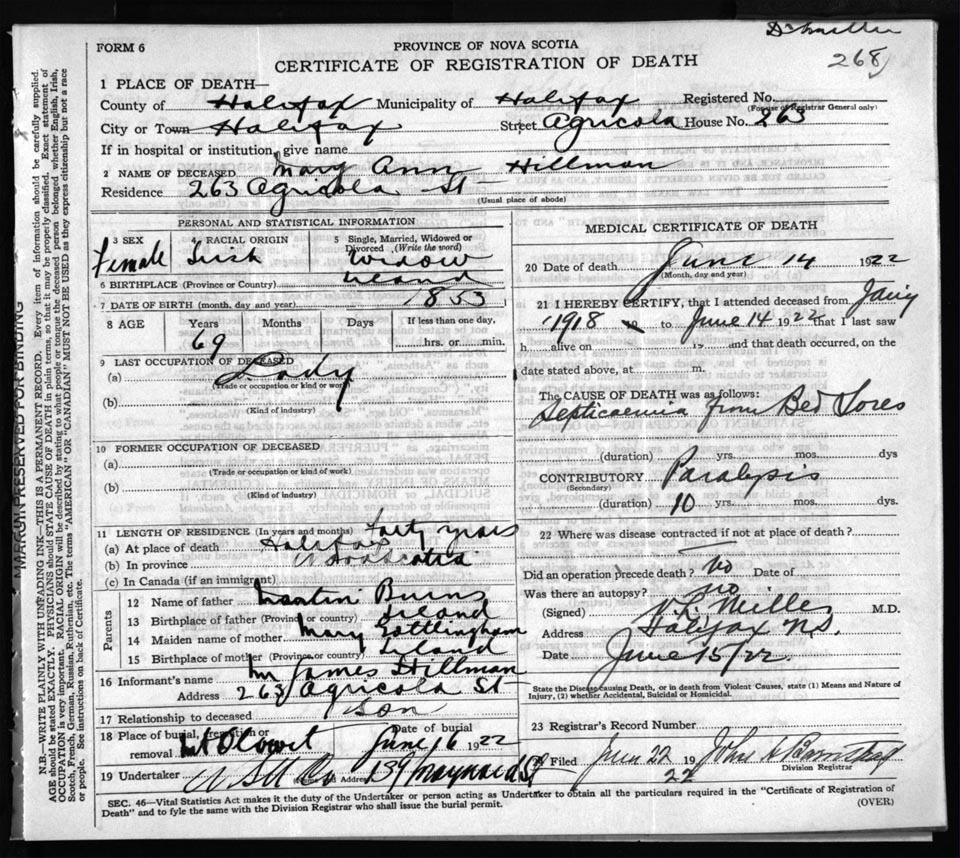 268
FORM 6
PROVINCE OF NOVA SCOTIA
CERTIFICATE OF REGISTRATION OF DEATH
1 PLACE OF DEATH—
County of Halifax Municipality of Halifax Registered No.
(For use of Registrar General only)
City or Town Halifax Street Agricola House No. 263
If in hospital or institution, give name
2 NAME OF DECEASED Mary Ann Hillman
Residence 263 Agricola St
(Usual place of abode)
PERSONAL AND STATISTICAL INFORMATION
3 SEX 4 RACIAL ORIGIN 5 Single, Married, Widowed or Divorced (Write the word)
Female Irish Widow
6 BIRTHPLACE (Province or Country) Ireland
7 DATE OF BIRTH (month, day and year) 1853
8 AGE Years Months Days If less than one day,
69 hrs. or min.
9 LAST OCCUPATION OF DECEASED
(a) Lady
(Trade or occupation or kind or work)
(b)
(Kind of industry)
10 FORMER OCCUPATION OF DECEASED
(a)
(Trade or occupation or kind of work)
(b)
(Kind of industry)
11 LENGTH OF RESIDENCE (In years and months) forty years
(a) At place of death Halifax
(b) In province Novascotia
(c) In Canada (if an immigrant)
Parents
12 Name of father Martin Burns
13 Birthplace of father (Province or country) Ireland
14 Maiden name of mother Mary
15 Birthplace of mother (Province or country) Ireland
16 Informant's name Mr James Hillman
Address 263 Agricola St
17 Relationship to deceased Son
18 Place of burial, cremation or removal Mt Olovet Date of burial June 16 1922
19 Undertaker Address 139 Maynard St
MEDICAL CERTIFICATE OF DEATH
20 Date of death June 14 1922
(Month, day and year)
21 I HEREBY CERTIFY, that I attended deceased from
1918 to June 14 1922 that I last saw
h alive on 19 and that death occurred, on the
date stated above, at m.
The CAUSE OF DEATH was as follows:
Septicaemia from Bed Sores
(duration) yrs. mos. dys
CONTRIBUTORY Paralysis
(Secondary)
(duration) 10 yrs. mos. dys.
22 Where was disease contracted if not at place of death?
Did an operation precede death? No Date of
Was there an autopsy? no
(Signed) M.D.
Address Halifax N.S.
Date June 15/22.
State the Disease causing Death, or in death from Violent Causes, state (1) Means and Nature of
Injury, (2) whether Accidental, Suicidal or Homicidal.
23 Registrar's Record Number
Filed June 22 19 22 John
Division Registrar
SEC. 46—Vital Statistics Act makes it the duty of the Undertaker or person acting as Undertaker to obtain all the particulars required in the "Certificate of Registration of
Death" and to fyle the same with the Division Registrar who shall issue the burial permit.
(OVER)
MARGIN RESERVED FOR BINDING
N.B.—WRITE PLAINLY WITH UNFADING INK—THIS IS A PERMANENT RECORD. Every item of information should be carefully supplied.
AGE should be stated EXACTLY. PHYSICIANS should STATE CAUSE OF DEATH in plain terms, so that it may be properly classified. Exact statement of
OCCUPATION is very important. RACIAL ORIGIN will be described by stating to what people or tongue the deceased person belonged, whether English, Irish,
Scotch, French, German, Russian, Ruthenian, etc. The terms "AMERICAN" or "CANADIAN" MUST NOT BE USED as they express citizenship but not a race
or people. See instructions on back of Certificate.